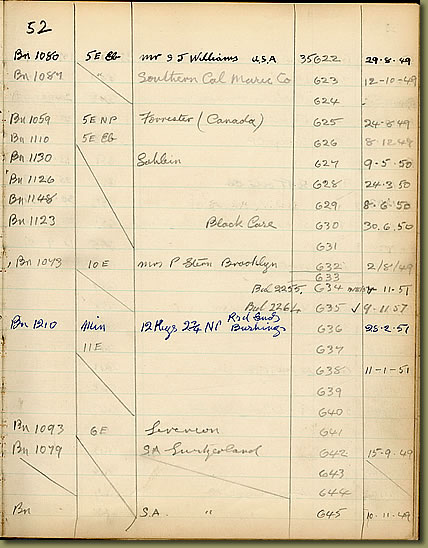 52
Bn 1080 5E EB Mr S J Williams U.S.A 35G22 29.8.49
Bn 1087 Southern Cal Music Co G23 12-10-49
G24
Bn 1059 5E NP Forrester (Canada) G25 24-8-49
Bn 1110 5E EB G26 8.12.49
Bn 1130 G27 9.5.50
Bn 1126 G28 24.3.50
Bn 1148 G29 8.6.50
Bn 1123 Black Case G30 30.6.50
G31
Bn 1073 10E Mrs P Stern Brooklyn G32 2/8/49
G33
Bal 2255 G34 11.51
Bal 2264 G35 ✓ 9.11.57
Bn 1210 Min 12 Keys 2¾ NP Rsd Ends Bushings G36 25.2.57
11E G37
G38 11-1-51
G39
G40
Bn 1093 6E Levenson G41
Bn 1079 SA Switzerland G42 15-9.49
G43
G44
Bn S.A. " G45 10.11.49